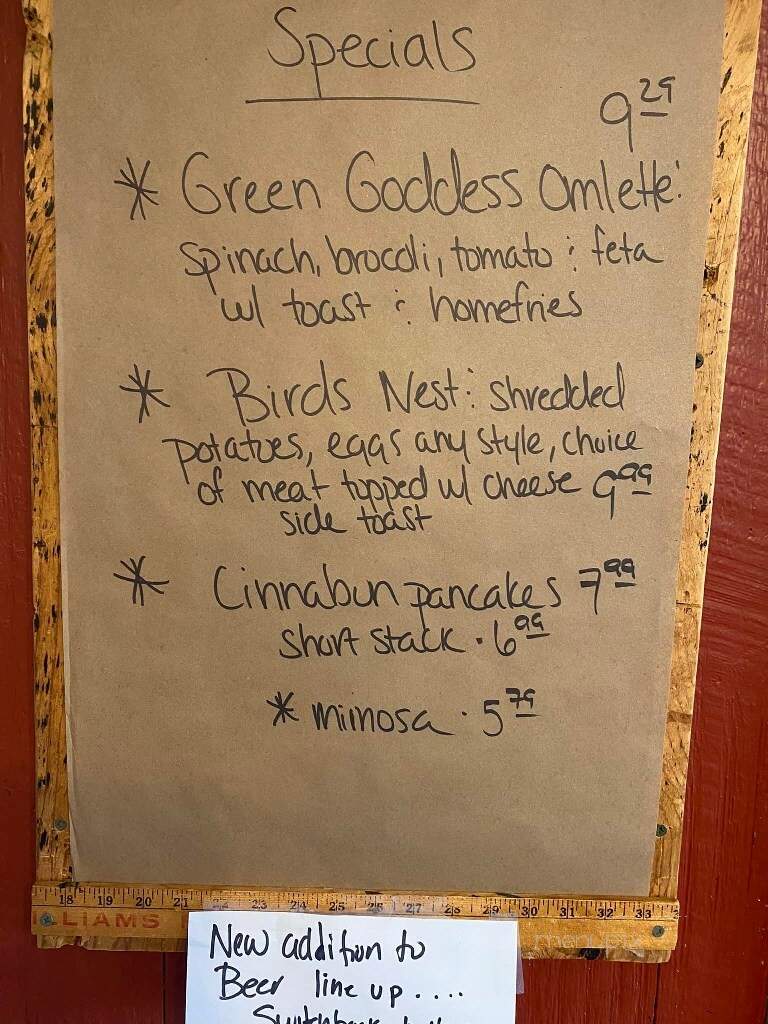 Specials
9 29
* Green Goddess Omlette:
spinach, brocoli, tomato & feta
w/ toast & homefries
* Birds Nest: shredded
potatoes, eggs any style, choice
of meat topped w/ cheese 9 99
side toast
* Cinnabun pancakes 7 99
short stack · 6 99
* mimosa · 5 79
18 19 20 21 22 23 24 25 26 27 28 29 30 31 32 33
LIAMS
New addition to
Beer line up....